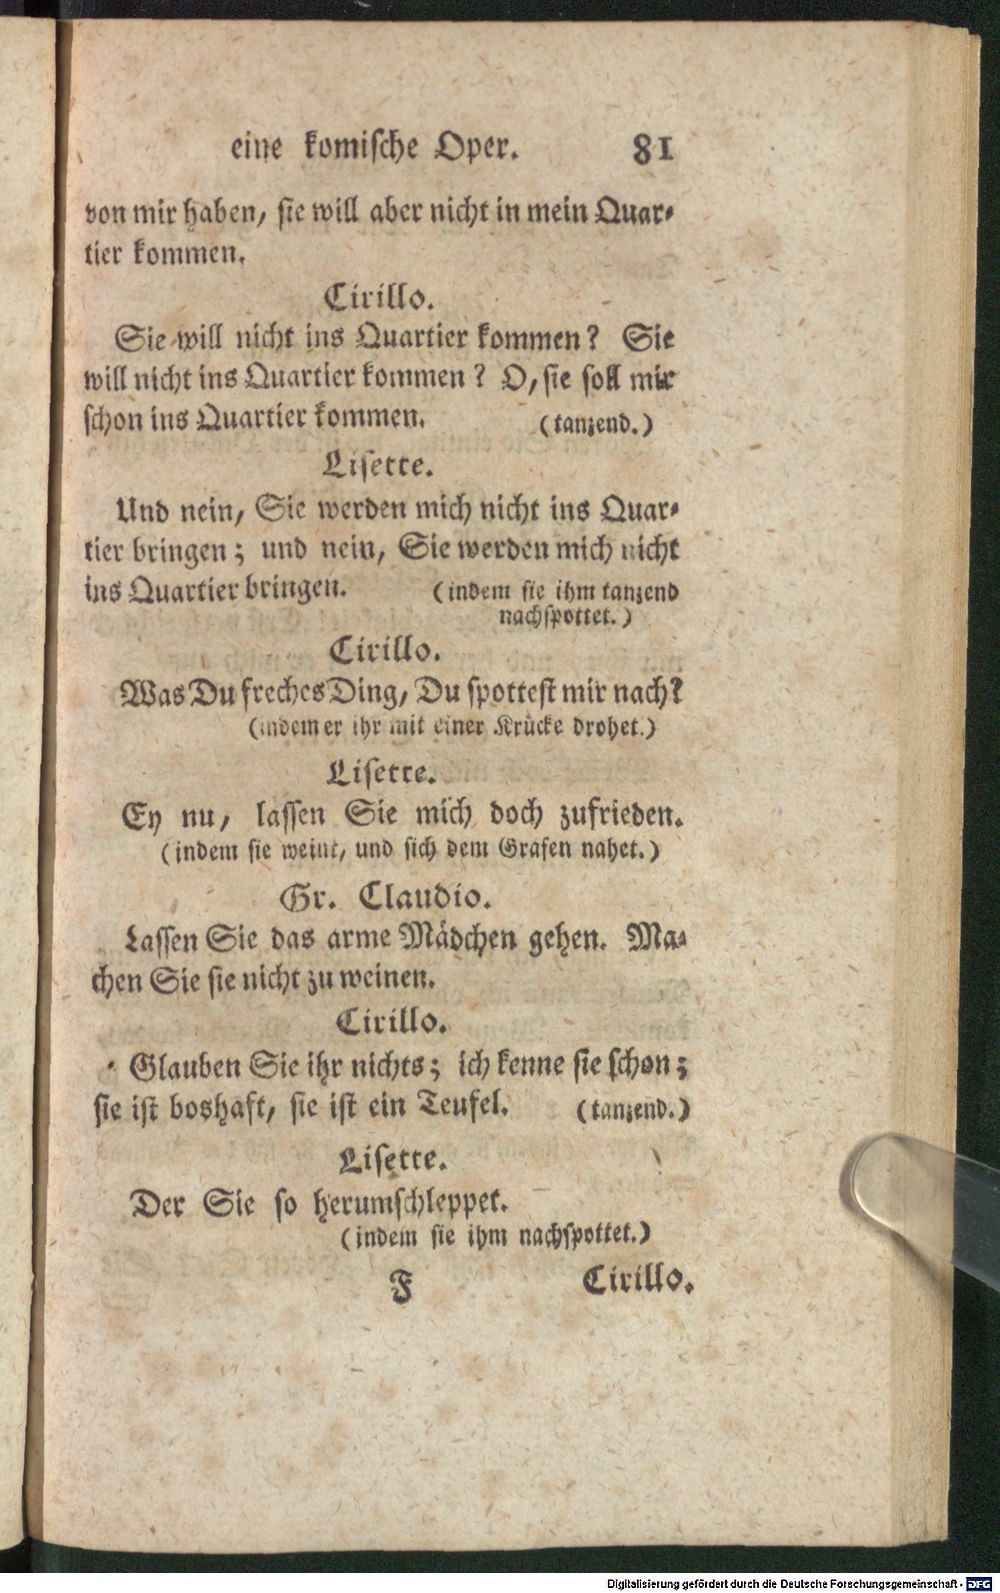 eine komische Oper. 81
von mir haben, sie will aber nicht in mein Quar-
tier kommen.
Cirillo.
Sie will nicht ins Quartier kommen? Sie
will nicht ins Quartier kommen? O, sie soll mir
schon ins Quartier kommen. (tanzend.)
Lisette.
Und nein, Sie werden mich nicht ins Quar-
tier bringen; und nein, Sie werden mich nicht
ins Quartier bringen. (indem sie ihm tanzend
nachspottet.)
Cirillo.
Was Du freches Ding, Du spottest mir nach?
(indem er ihr mit einer Krücke drohet.)
Lisette.
Ey nu, lassen Sie mich doch zufrieden.
(indem sie weint, und sich dem Grafen nahet.)
Gr. Claudio.
Lassen Sie das arme Mädchen gehen. Ma-
chen Sie sie nicht zu weinen.
Cirillo.
Glauben Sie ihr nichts; ich kenne sie schon;
sie ist boshaft, sie ist ein Teufel. (tanzend.)
Lisette.
Der Sie so herumschleppet.
(indem sie ihm nachspottet.)
F Cirillo.
Digitalisierung gefördert durch die Deutsche Forschungsgemeinschaft - DFG